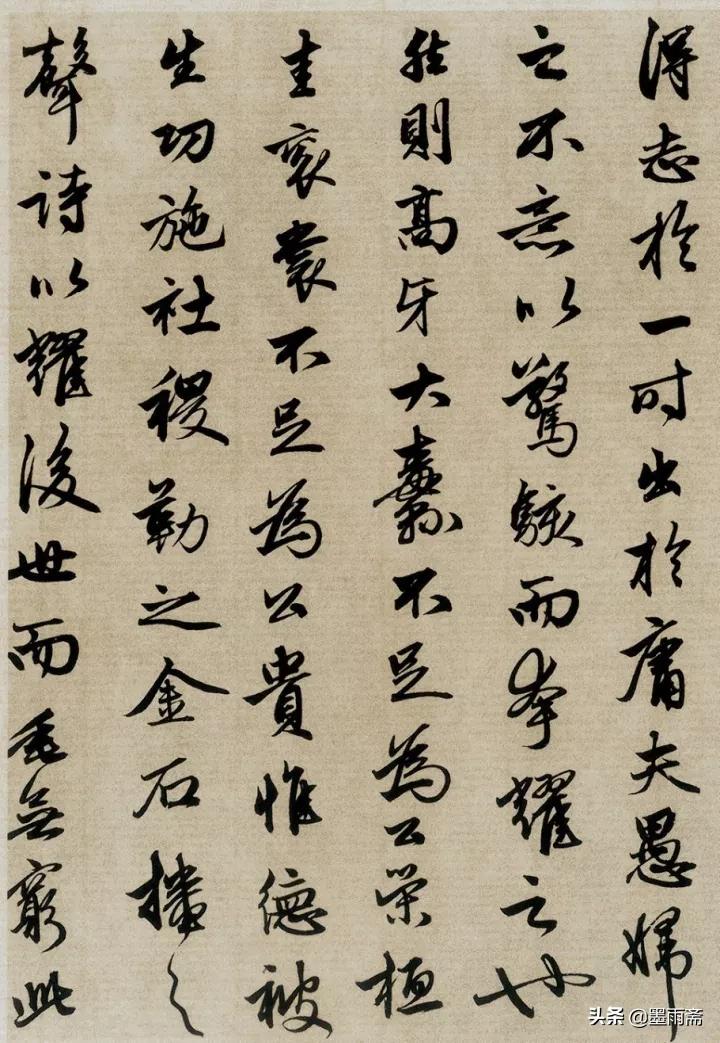 得志於一时出於庸夫愚婦
之不意以驚駭而夸耀之也
然則高牙大纛不足為公榮桓
圭衮裳不足為公貴惟德被
生功施社稷勒之金石播之
聲詩以耀後世而垂無窮此
头条 @墨雨斋